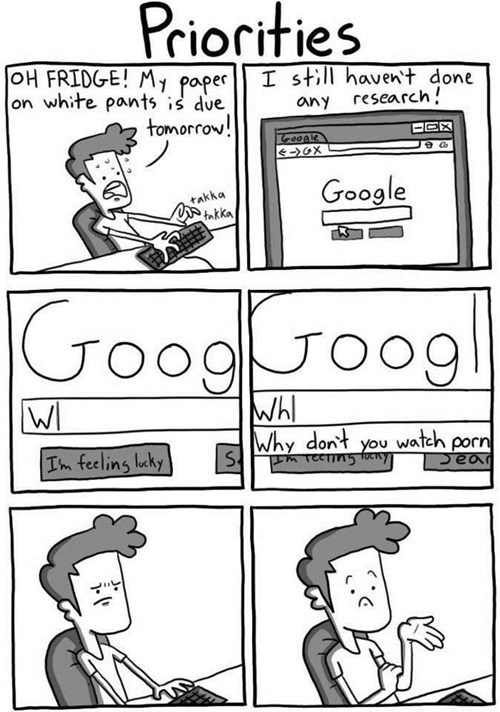 Priorities
OH FRIDGE! My paper
on white pants is due
tomorrow!
takka
takka
I still haven't done
any research!
Google
Google
Goog
W
I'm feeling lucky
S
Googl
Wh
Why don't you watch porn
I'm feeling lucky
Sear